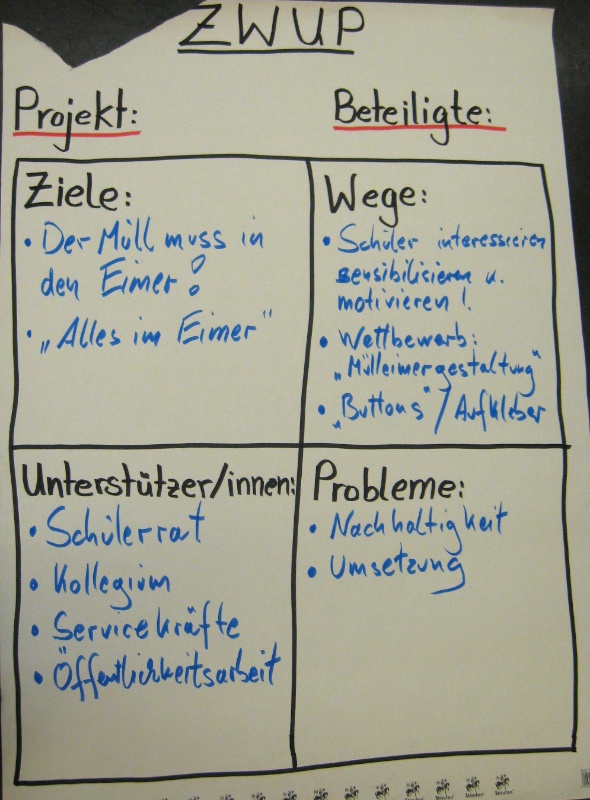 ZWUP
Projekt:
Beteiligte:
Ziele:
• Der Müll muss in
den Eimer!
• „Alles im Eimer"
Wege:
• Schüler interessieren
sensibilisieren u.
motivieren!
• Wettbewerb:
„Mülleimergestaltung"
• „Buttons" / Aufkleber
Unterstützer/innen:
• Schülerrat
• Kollegium
• Servicekräfte
• Öffentlichkeitsarbeit
Probleme:
• Nachhaltigkeit
• Umsetzung